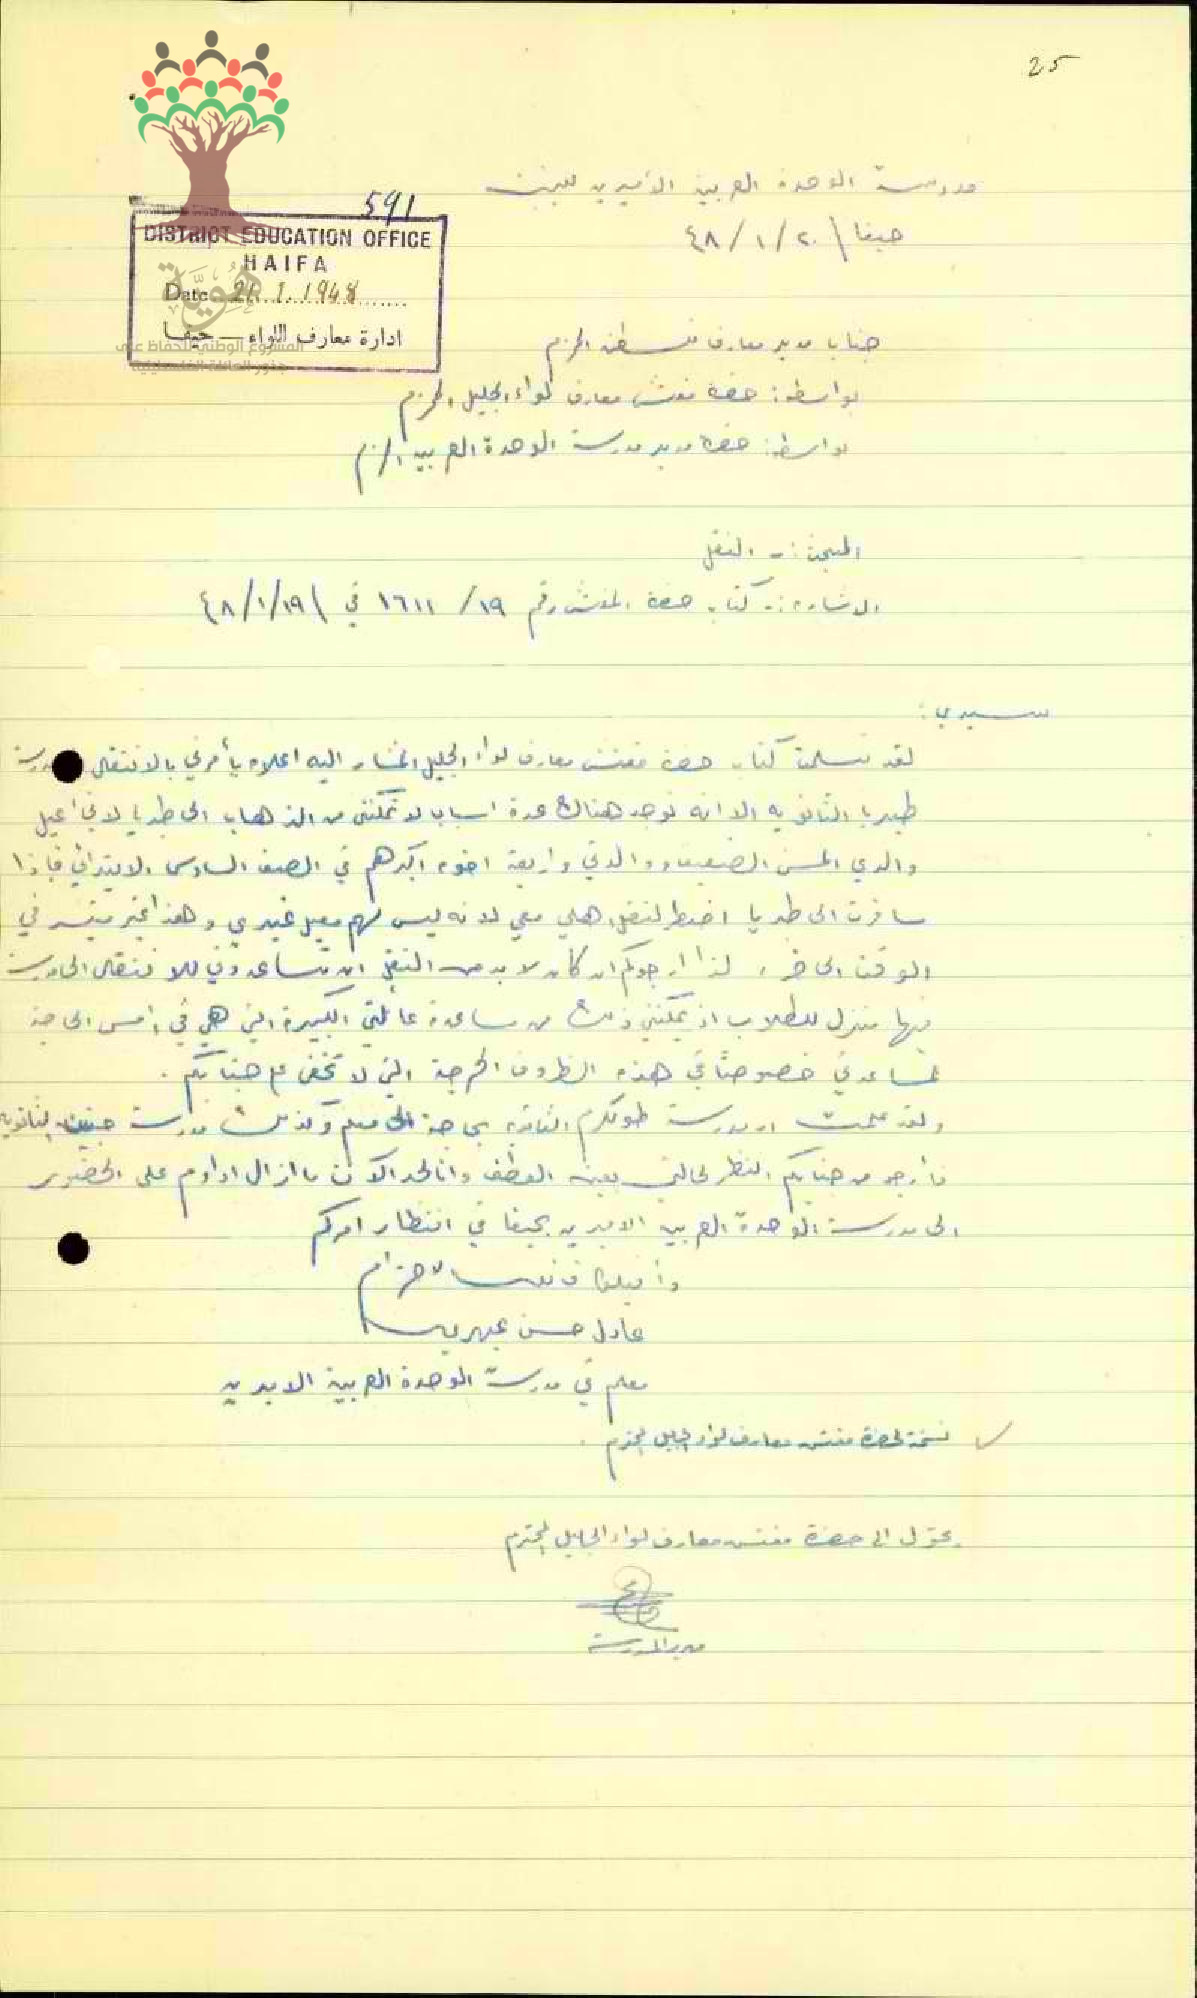 25
مدرسة الوحدة العربية الاميرية للبنين
حيفا ٢٠/١/٤٨
591
DISTRICT EDUCATION OFFICE
HAIFA
Date 21.1.1948
ادارة معارف اللواء — حيفا
هُوِيَّة
المشروع الوطني للحفاظ على
جذور العائلة الفلسطينية
جناب مدير معارف فلسطين المحترم
بواسطة: حضرة مفتش معارف لواء الجليل المحترم
بواسطة: حضرة مدير مدرسة الوحدة العربية المحترم
المبحث :- النقل
الاشارة :- كتاب حضرة المفتش رقم ١٩/ ١٦١١ في ١٩/١/٤٨
سيدي :
لقد تسلمت كتاب حضرة مفتش معارف لواء الجليل المشار اليه اعلاه يأمرني بالانتقال
طبريا الثانويه الا انه توجد هناك عدة اسباب لا تمكنني من الذهاب الى طبريا لاني اعيل
والدي المسن الضعيف ووالدتي واربعة اخوه اكبرهم في الصف السادس الابتدائي فاذا
سافرت الى طبريا اضطر لنقل اهلي معي لانه ليس لهم معيل غيري وهذا غير متيسر في
الوقت الحاضر ، لذا ارجوكم ان كان لا بد من النقل ان تساعدوني للانتقال الى مدرسة
فيها منزل للطلاب اذ يمكنني ذلك من مساعدة عائلتي الكبيرة التي هي في امس الحاجة
لمساعدتي خصوصًا في هذه الظروف الحرجة التي لا تخفى على جنابكم .
ولقد علمت ان مدرسة طولكرم الثانوية بحاجة الى معلم وكذلك مدرسة جنين الثانوية
فأرجو من جنابكم النظر لحالتي بعين العطف وانا لحد الآن ما ازال اداوم على الحضور
الى مدرسة الوحدة العربية الاميرية بحيفا في انتظار امركم
واقبلوا فائق الاحترام
عادل حسن
معلم في مدرسة الوحدة العربية الاميرية
نسخة لحضرة مفتش معارف لواء الجليل المحترم .
يحوّل الى حضرة مفتش معارف لواء الجليل المحترم
مدير المدرسة